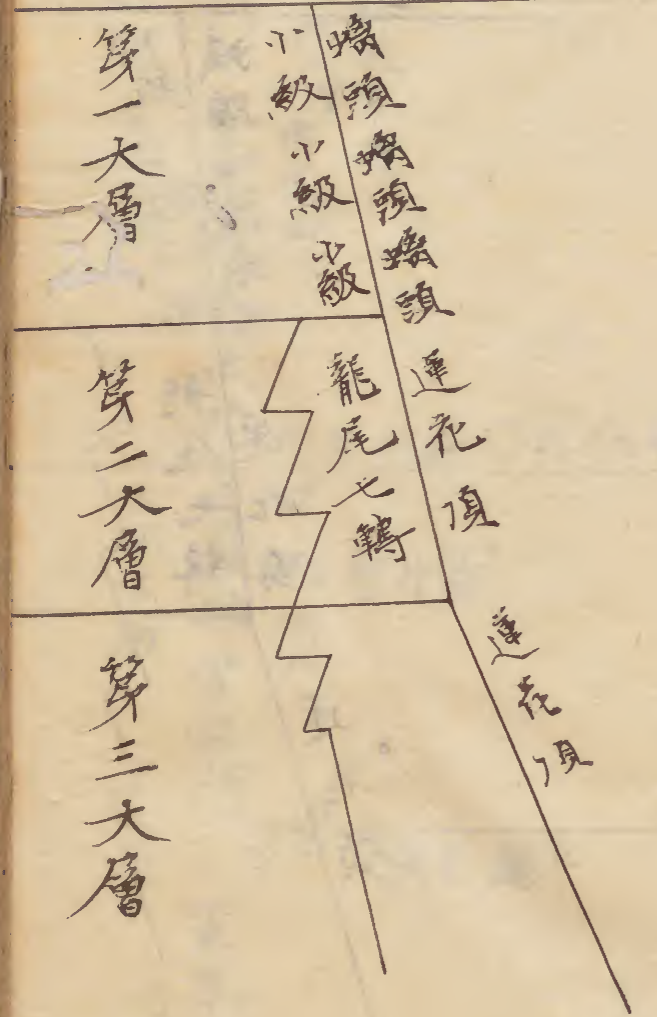 螭頭螭頭螭頭
小級小級小級
第一大層
蓮花頂
龍尾七轉
第二大層
蓮花頂
第三大層